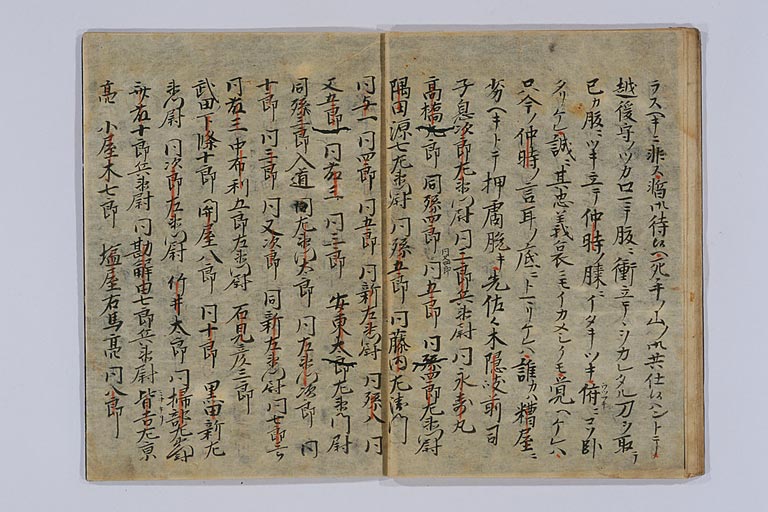 ラスヘキニ非ス暫ク御待候ヘ死手ノ山ノ御共仕候ハントテ
越後守ノツカロマテ腹ニ衝立テヲシカレタル刀ヲ取テ
己カ腹ニツキ立テ仲時ノ膝ニイタキツキ府ニコソ臥
タリケレ誠ニ其忠義哀ニモイカメシクモ覚ヘケレハ
只今ノ仲時ノ言耳ノ底ニトマリケレハ誰カハ糟屋ニ
劣ヘキトテ押膚脱キ先佐々木隠岐前司
子息次郎左衛門尉 同三郎兵衛尉 同永寿丸
高橋九郎 同孫四郎 同五郎 同孫四郎左衛門尉
隅田源七左衛門尉 同孫五郎 同藤内左衛門
同与一 同四郎 同五郎 同新左衛門尉 同孫八 同
又五郎 同左三 同三郎 安東太郎左衛門尉
同孫三郎入道 同左衛門太郎 同左衛門次郎 同
十郎 同三郎 同又次郎 同新左衛門尉 同七郎三
同左三 中布利五郎左衛門尉 石見彦三郎
武田下條十郎 関屋八郎 同十郎 黒田新左
衛門尉 同次郎左衛門尉 竹井太郎 同掃部左衛門尉
寄藤十郎兵衛尉 同勘解由七郎兵衛尉 皆吉左京
亮 小屋木七郎 塩屋右馬亮 同八郎